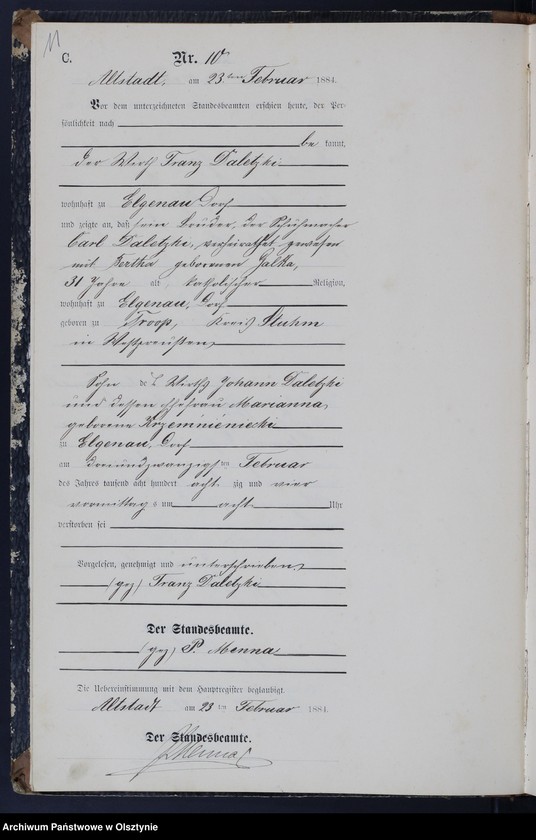 11
C.
Nr. 10
Altstadt, am 23ten Februar 1884.
Vor dem unterzeichneten Standesbeamten erschien heute, der Per-
sönlichkeit nach
be kannt,
der Wirth Franz Daletzki
wohnhaft zu Elgenau Dorf
und zeigte an, daß sein Bruder, der Schuhmacher
Carl Daletzki, verheirathet gewesen
mit Bertha geborenen Galka,
31 Jahre alt, katholischer Religion,
wohnhaft zu Elgenau, Dorf
geboren zu Troop, Kreis Stuhm
in Westpreußen,
Sohn des Wirths Johann Daletzki
und dessen Ehefrau Marianna,
geborene Krzeminieniecki
zu Elgenau, Dorf
am dreiundzwanzigsten Februar
des Jahres tausend acht hundert acht zig und vier
vormittags um acht Uhr
verstorben sei
Vorgelesen, genehmigt und unterschrieben
(gez) Franz Daletzki
Der Standesbeamte.
(gez) P. Menna
Die Uebereinstimmung mit dem Hauptregister beglaubigt.
Altstadt am 23ten Februar 1884.
Der Standesbeamte.
PMenna
Archiwum Państwowe w Olsztynie